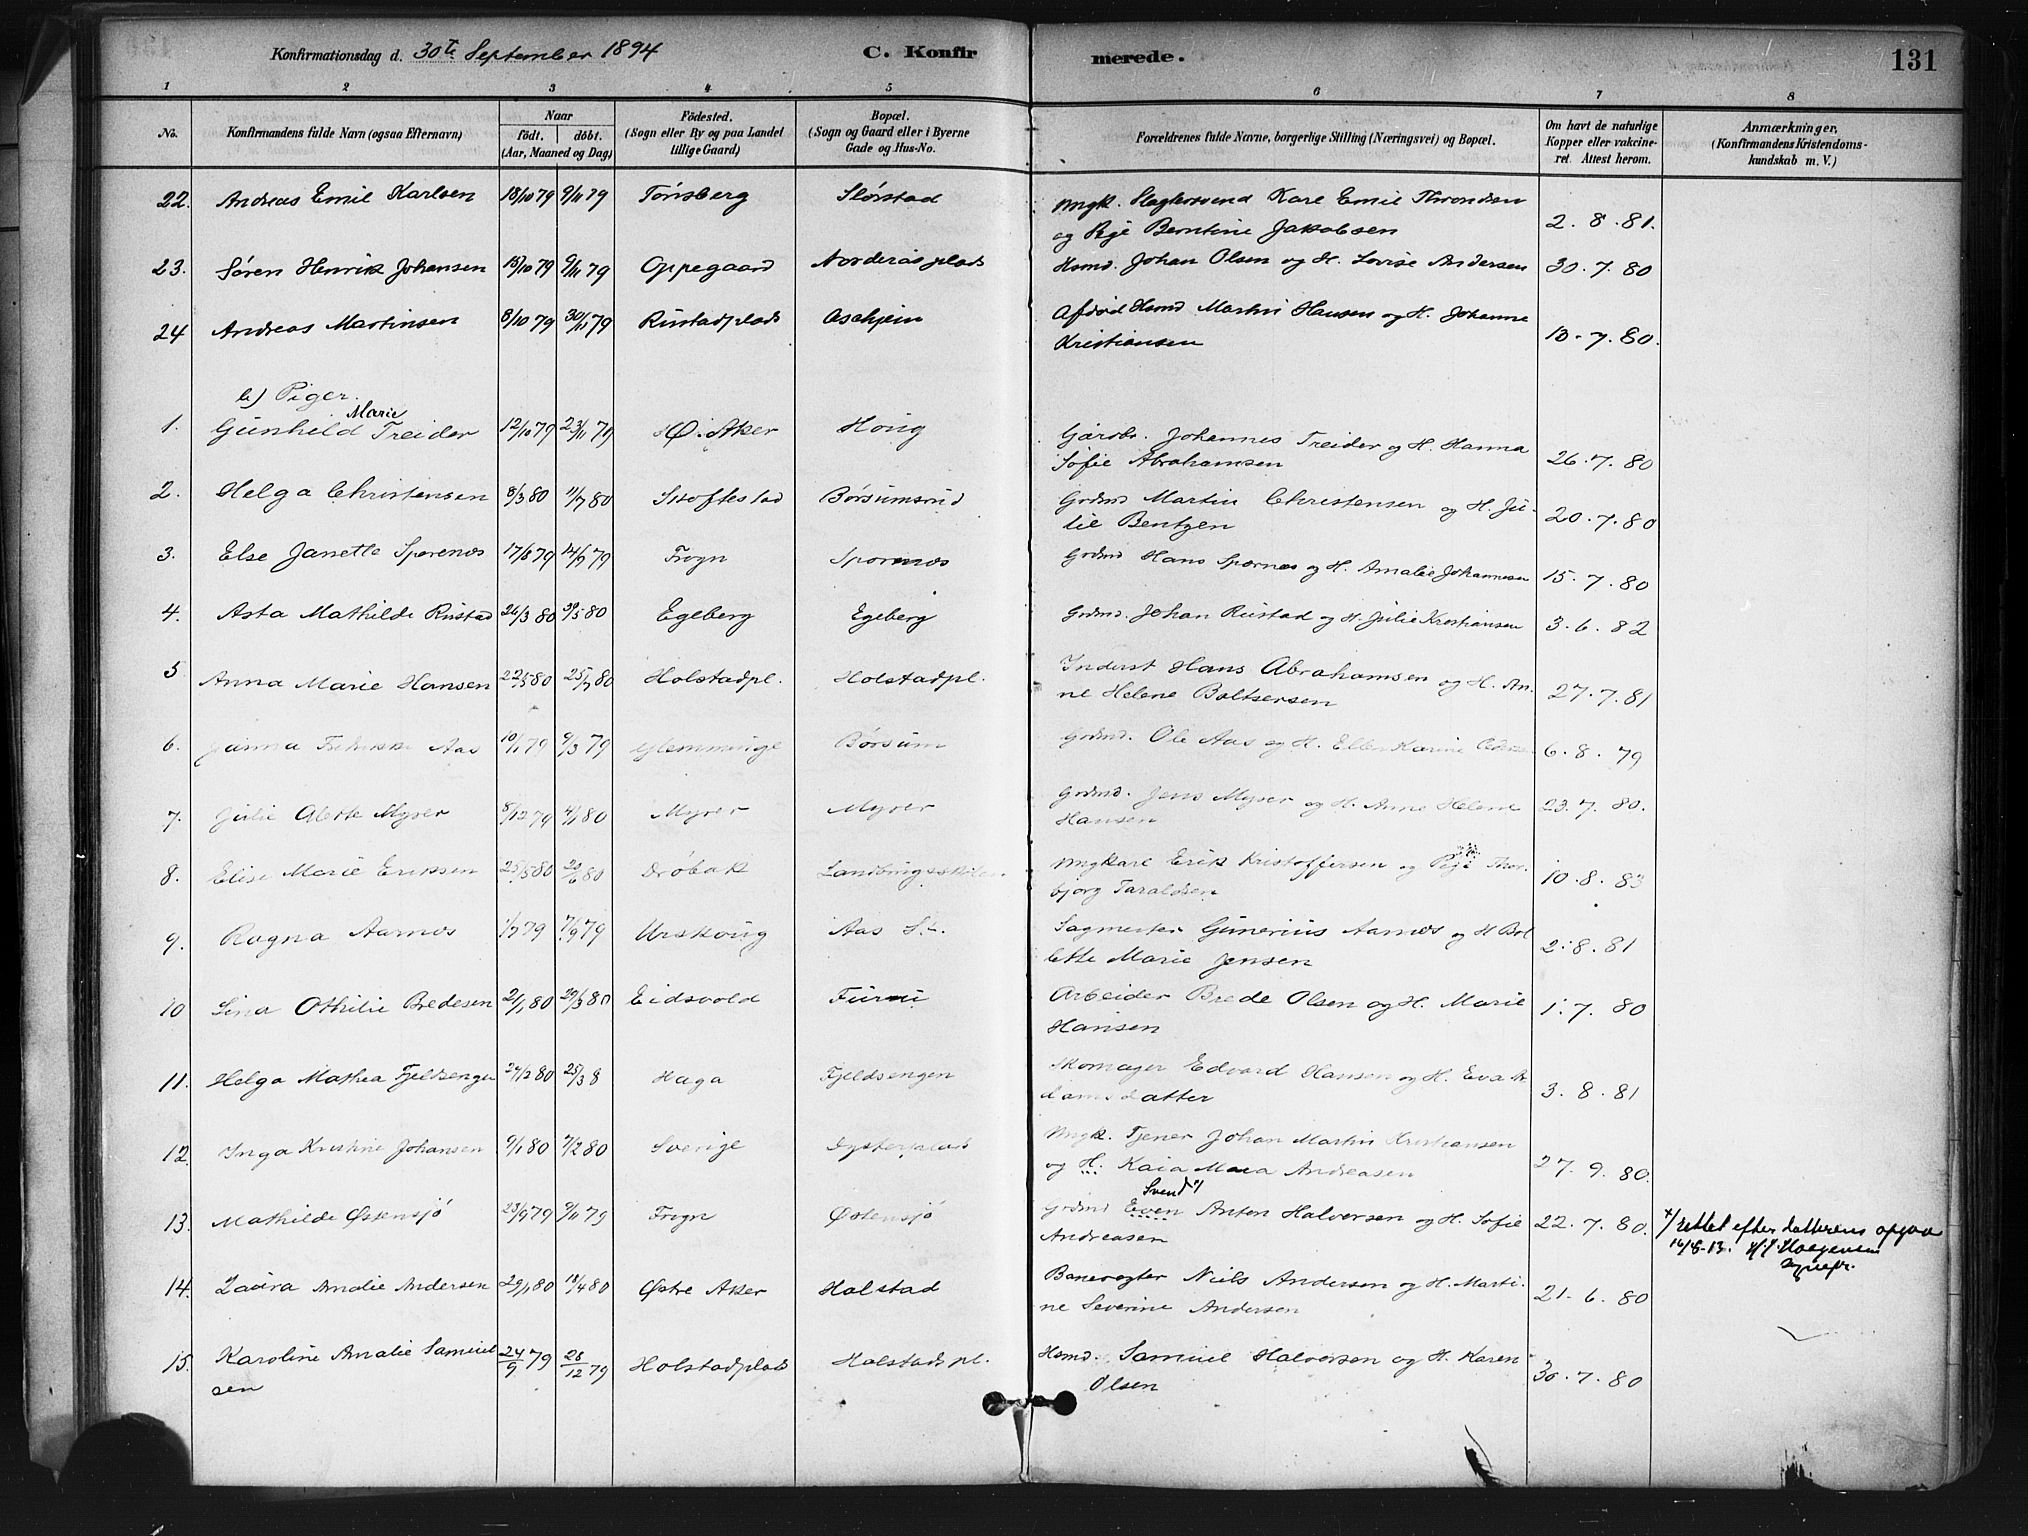 Konfirmationsdag d. 30te September 1894 C. Konfir merede. 131
1 2 3 4 5 6 7 8
No. Konfirmandens fulde Navn (ogsaa Efternavn) Naar födt. döbt. (Aar, Maaned og Dag) Födested. (Sogn eller By og paa Landet tillige Gaard) Bopæl. (Sogn og Gaard eller i Byerne Gade og Hus-No. Forældrenes fulde Navne, borgerlige Stilling (Næringsvei) og Bopæl. Om havt de naturlige Kopper eller vakcineret. Attest herom. Anmærkninger, (Konfirmandens Kristendomskundskab m. V.)
22. Andreas Emil Karlsen 18/10 79 9/11 79 Tönsberg Störstad Ungk. Slagtersvend Karl Emil Throndsen
og Pige Berntine Jakobsen 2. 8. 81.
23. Sören Henrik Johansen 15/10 79 9/11 79 Oppegaard Norderåsplads Hsmd. Johan Olsen og H. Lovise Andersen 30. 7. 80
24 Andreas Martinsen 8/10 79 30/11 79 Rustadplads Askjem Afdöd Hsmd Martin Hansen og H. Johanne
Kristiansen 13. 7. 80.
b) Piger.
1. Gunhild Marie Treider 12/10 79 23/11 79 Ö. Aker Houg Gårdbr. Johannes Treider og H. Hanna
Sofie Abrahamsen 26. 7. 80
2. Helga Christensen 8/3 80 11/7 80 Skoftestad Börsumsrud Grdmd Martin Christensen og H. Ju-
lie Bentzen 20. 7. 80
3. Else Janette Sporenæs 17/6 79 14/9 79 Frogn Sporenæs Grdmd Hans Spornæs og H. Amalie Johannesen 15. 7. 80
4. Asta Mathilde Rustad 26/3 80 30/5 80 Egeberg Egeberg Grdmd. Johan Rustad og H. Julie Kristiansen 3. 6. 82
5 Anna Marie Hansen 22/5 80 25/7 80 Holstadpl. Holstadpl. Inderst Hans Abrahamsen og H. An-
ne Helene Baltsersen 27. 7. 81
6. Aas 10/1 79 9/3 79 Glemminge Börsum Grdmd. Ole Aas og H. Ellen Karine 6. 8. 79
7. Julie Alette Myrer 8/12 79 4/1 80 Myrer Myrer Grdmd. Jens Myrer og H. Anne Helene
Hansen 23. 7. 80.
8. Elise Marie Eriksen 25/5 80 20/6 80 Dröbak Ungkarl Erik Kristoffersen og Pige Thor-
bjorg Taraldsen 10. 8. 83
9. Ragna Aarnæs 1/7 79 7/9 79 Urskoug Aas St. Sagmester Gunerius Aarnæs og H Bol
lette Marie Jensen 2. 8. 81
10 Lina Othilie Bredesen 21/1 80 30/3 80 Eidsvold Furui Arbeider Brede Olsen og H. Marie
Hansen 1. 7. 80
11. Helga Mathea Fjeldsengen 24/2 80 25/3 8 Haga Fjeldsengen Skomager Edvard Hansen og H. Eva A-
damsdatter 3. 8. 81
12. Inga Kristine Johansen 9/1 80 7/2 80 Sverige Dysterplads Ungk. Tjener Johan Martin Kristiansen
og H. Kaia Maria Andreasen 27. 9. 80.
Svend x/
13. Mathilde Östensjö 23/9 79 9/11 79 Frogn Östensjö Grdmd Even Anton Halvorsen og H. Sofie
Andreasen 22. 7. 80. x/ rettet efter datterens opgave
16/8-13.
14. Laura Amalie Andersen 29/1 80 18/4 80 Östre Aker Holstad Banevogter Niels Andersen og H. Marti-
ne Severine Andersen 21. 6. 80
15. Karoline Amalie Samuel
sen 24/9 79 28/12 79 Holstadplads Holstadspl. Hsmd. Samuel Halvorsen og H. Karen
Olsen 30. 7. 80